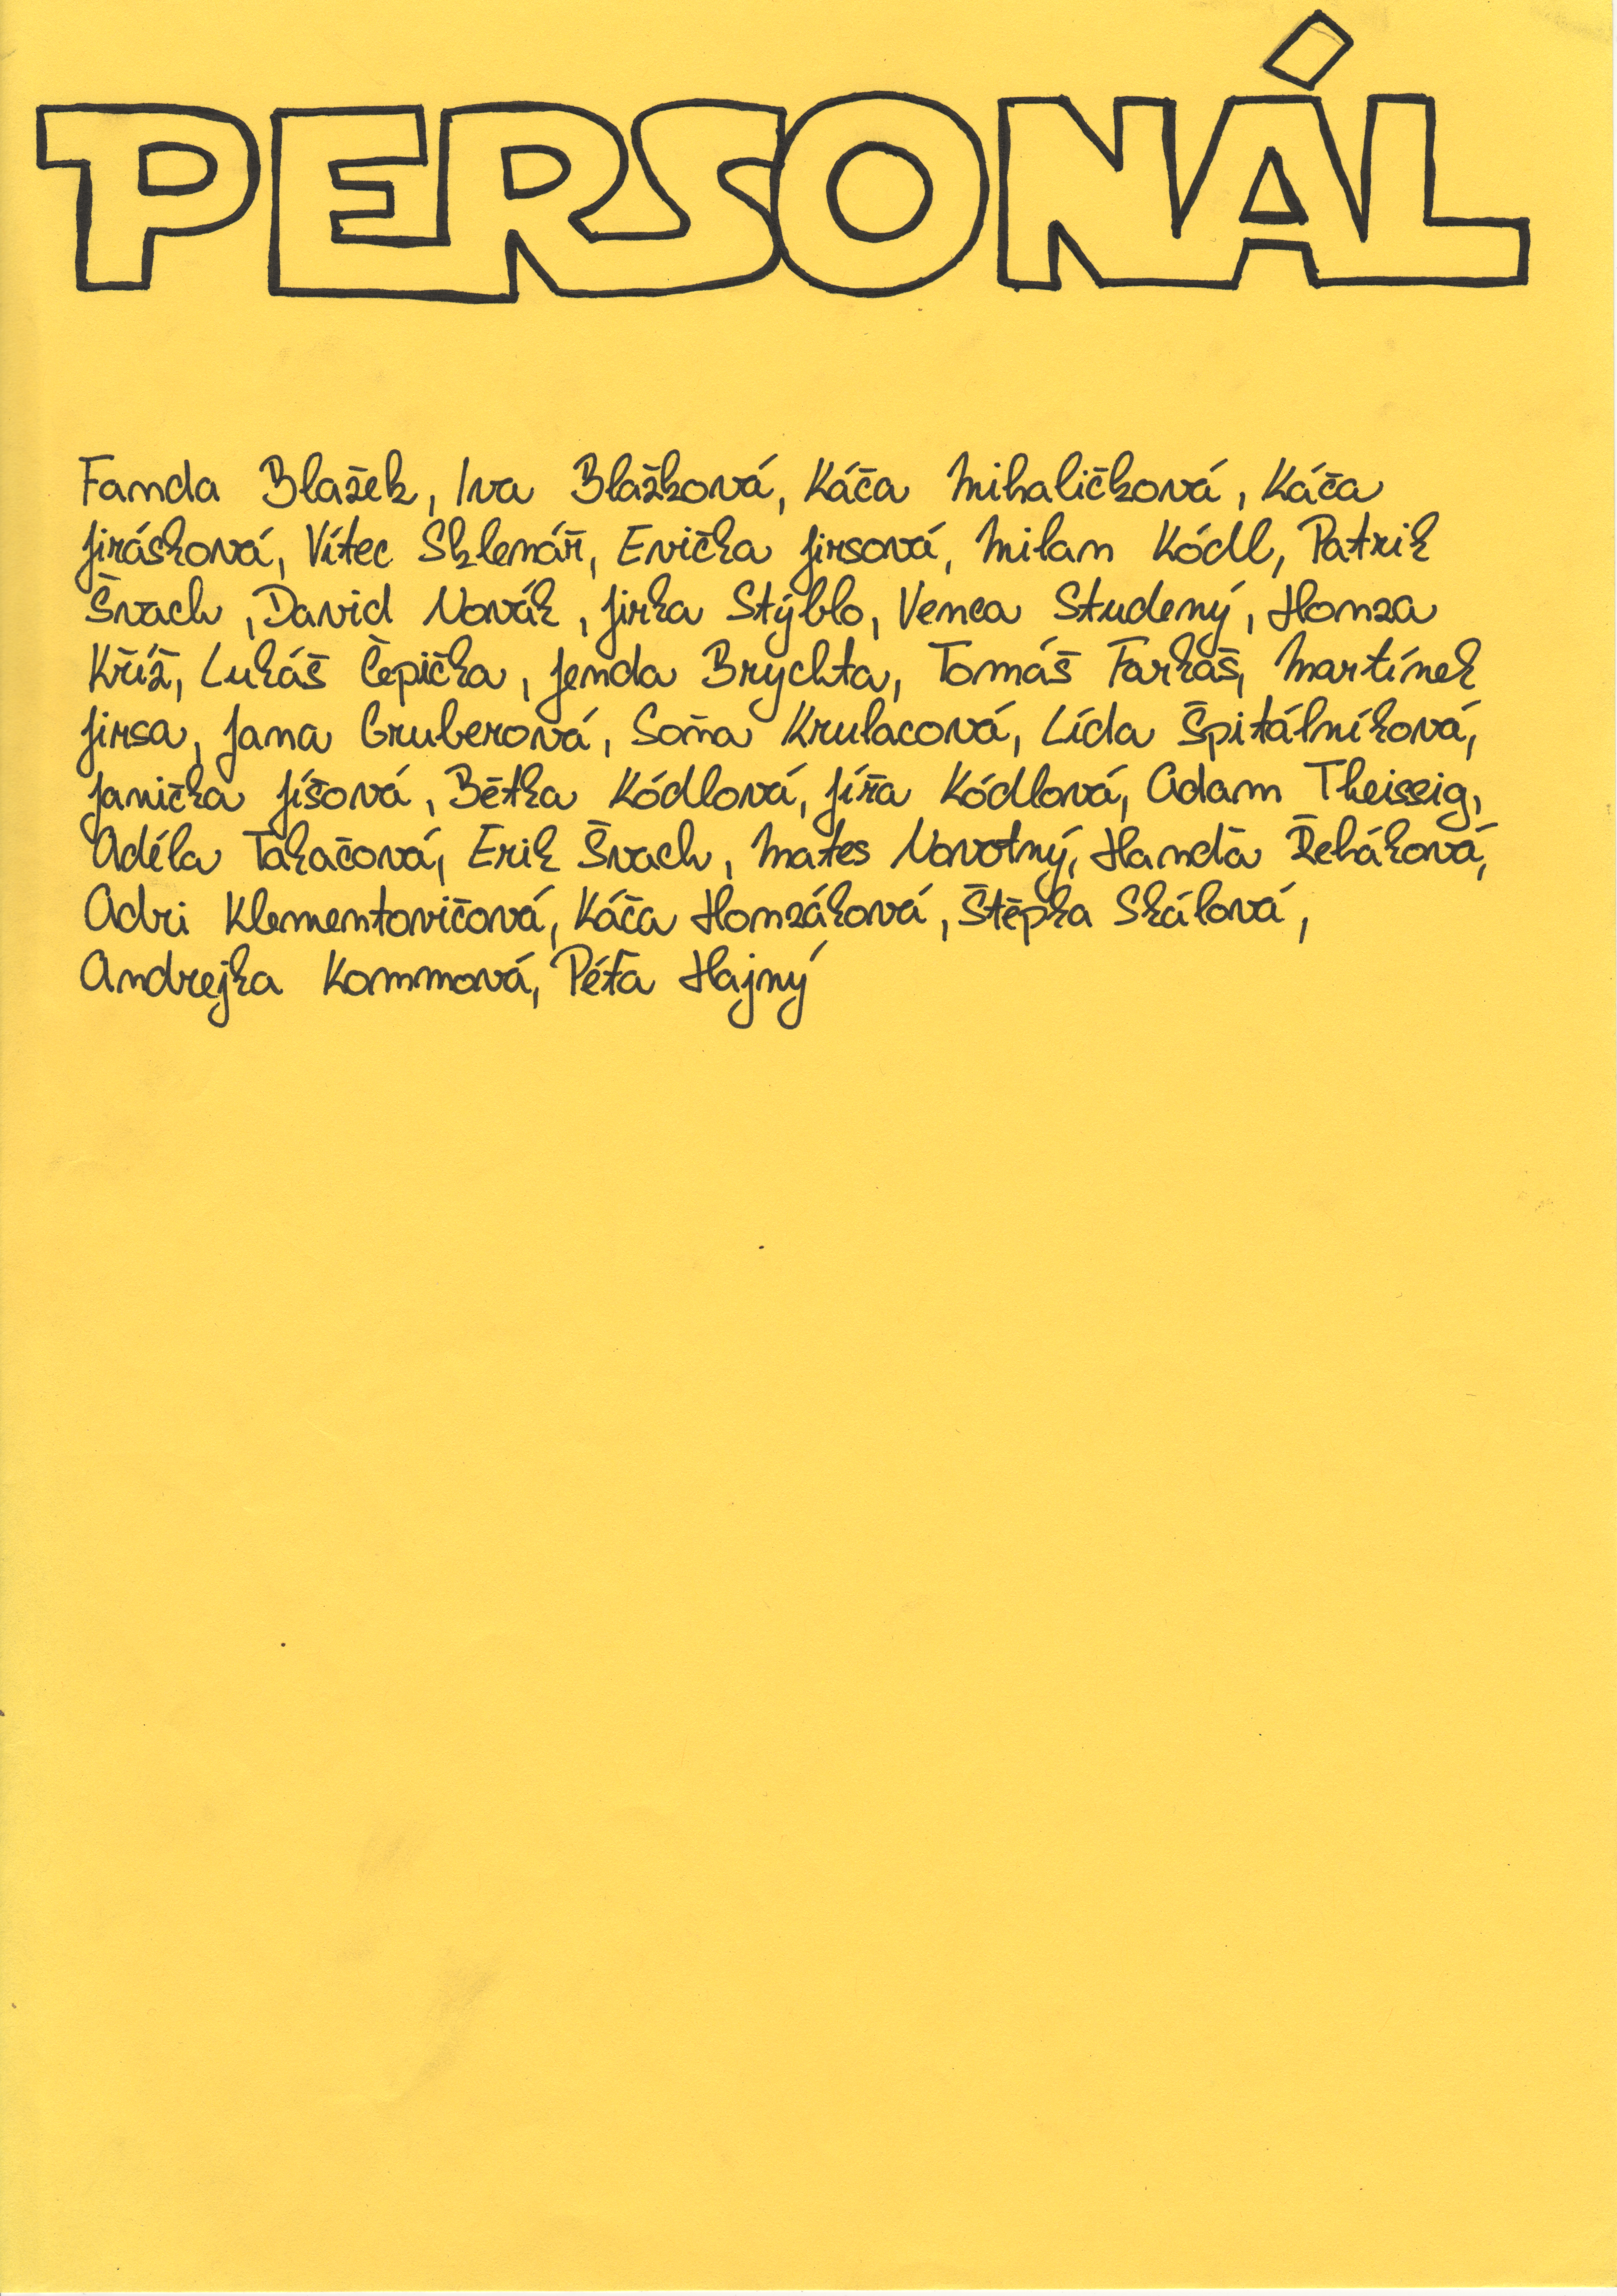 PERSONÁL
Fanda Blažek, Iva Blažková, Káča Mihaličková, Káča
Jirásková, Vítec Sklenář, Evička Jirsová, Milan Kódl, Patrik
Švach, David Novák, Jirka Stýblo, Venca Studený, Honza
Kříž, Lukáš Čepička, Jenda Brychta, Tomáš Farkaš, Martínek
Jirsa, Jana Gruberová, Soňa Krulacová, Lída Špitálníková,
Janička Jíšová, Bětka Kódlová, Jíťa Kódlová, Adam Theissig,
Adéla Takačová, Erik Švach, Mates Novotný, Handa Řeháková,
Adri Klementovičová, Káča Honzáková, Štěpka Skálová,
Andrejka Kommová, Péťa Hajný